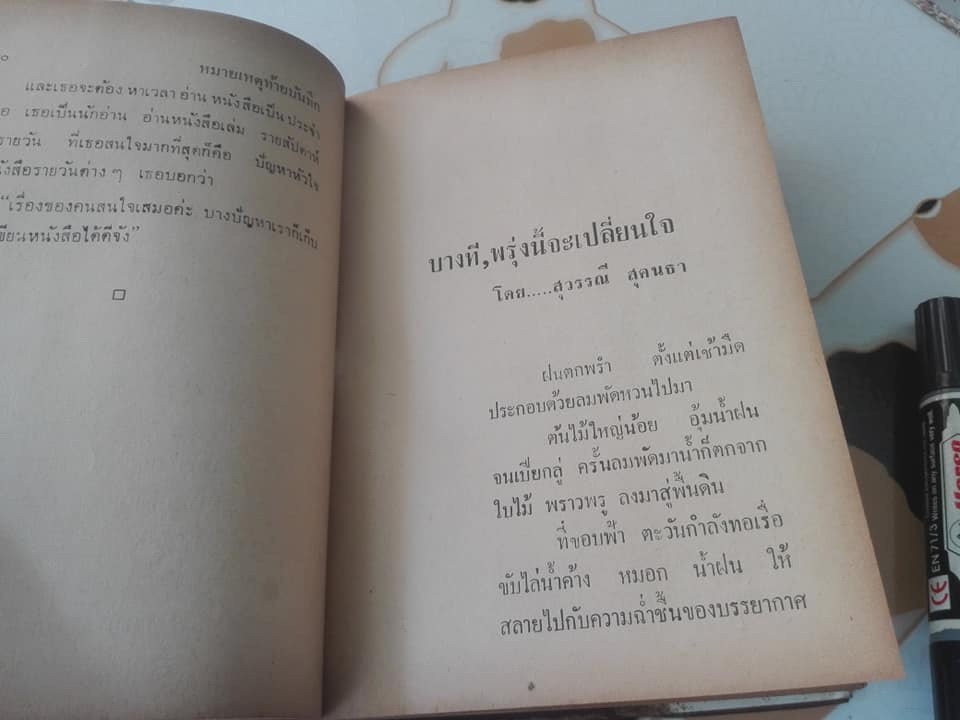 ๐
หมายเหตุท้ายบันทึก
และเธอจะต้อง หาเวลา อ่าน หนังสือเป็น ประจำ
เธอเป็นนักอ่าน อ่านหนังสือเล่ม รายสัปดาห์
รายวัน ที่เธอสนใจมากที่สุดก็คือ ปัญหาหัวใจ
หนังสือรายวันต่าง ๆ เธอบอกว่า
“เรื่องของคนสนใจเสมอค่ะ บางปัญหาเราก็เก็บ
เขียนหนังสือได้ดีจัง”
บางที, พรุ่งนี้จะเปลี่ยนใจ
โดย..... สุวรรณี สุคนธา
ฝนตกพรำ ตั้งแต่เช้ามืด
ประกอบด้วยลมพัดหวนไปมา
ต้นไม้ใหญ่น้อย อุ้มน้ำฝน
จนเปียกลู่ ครั้นลมพัดมาน้ำก็ตกจาก
ใบไม้ พราวพรู ลงมาสู่พื้นดิน
ที่ขอบฟ้า ตะวันกำลังทอเรื่อ
ขับไล่น้ำค้าง หมอก น้ำฝน ให้
สลายไปกับความฉ่ำชื้นของบรรยากาศ
Horse
EN 71/3
CE